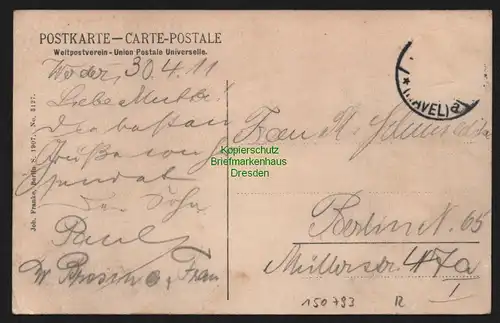 POSTKARTE — CARTE-POSTALE
Weltpostverein - Union Postale Universelle.
Werder, 30.4.11
Liebe Mutter!
Die besten
Grüße von
sendet
Dein Sohn
Paul
u. Frau
Joh. Franke, Berlin S. 1907. No. 3127.
(HAVEL) a
Frau A.
Kopierschutz
Briefmarkenhaus
Dresden
Berlin N. 65
Müllerstr 47a
I
150793 R